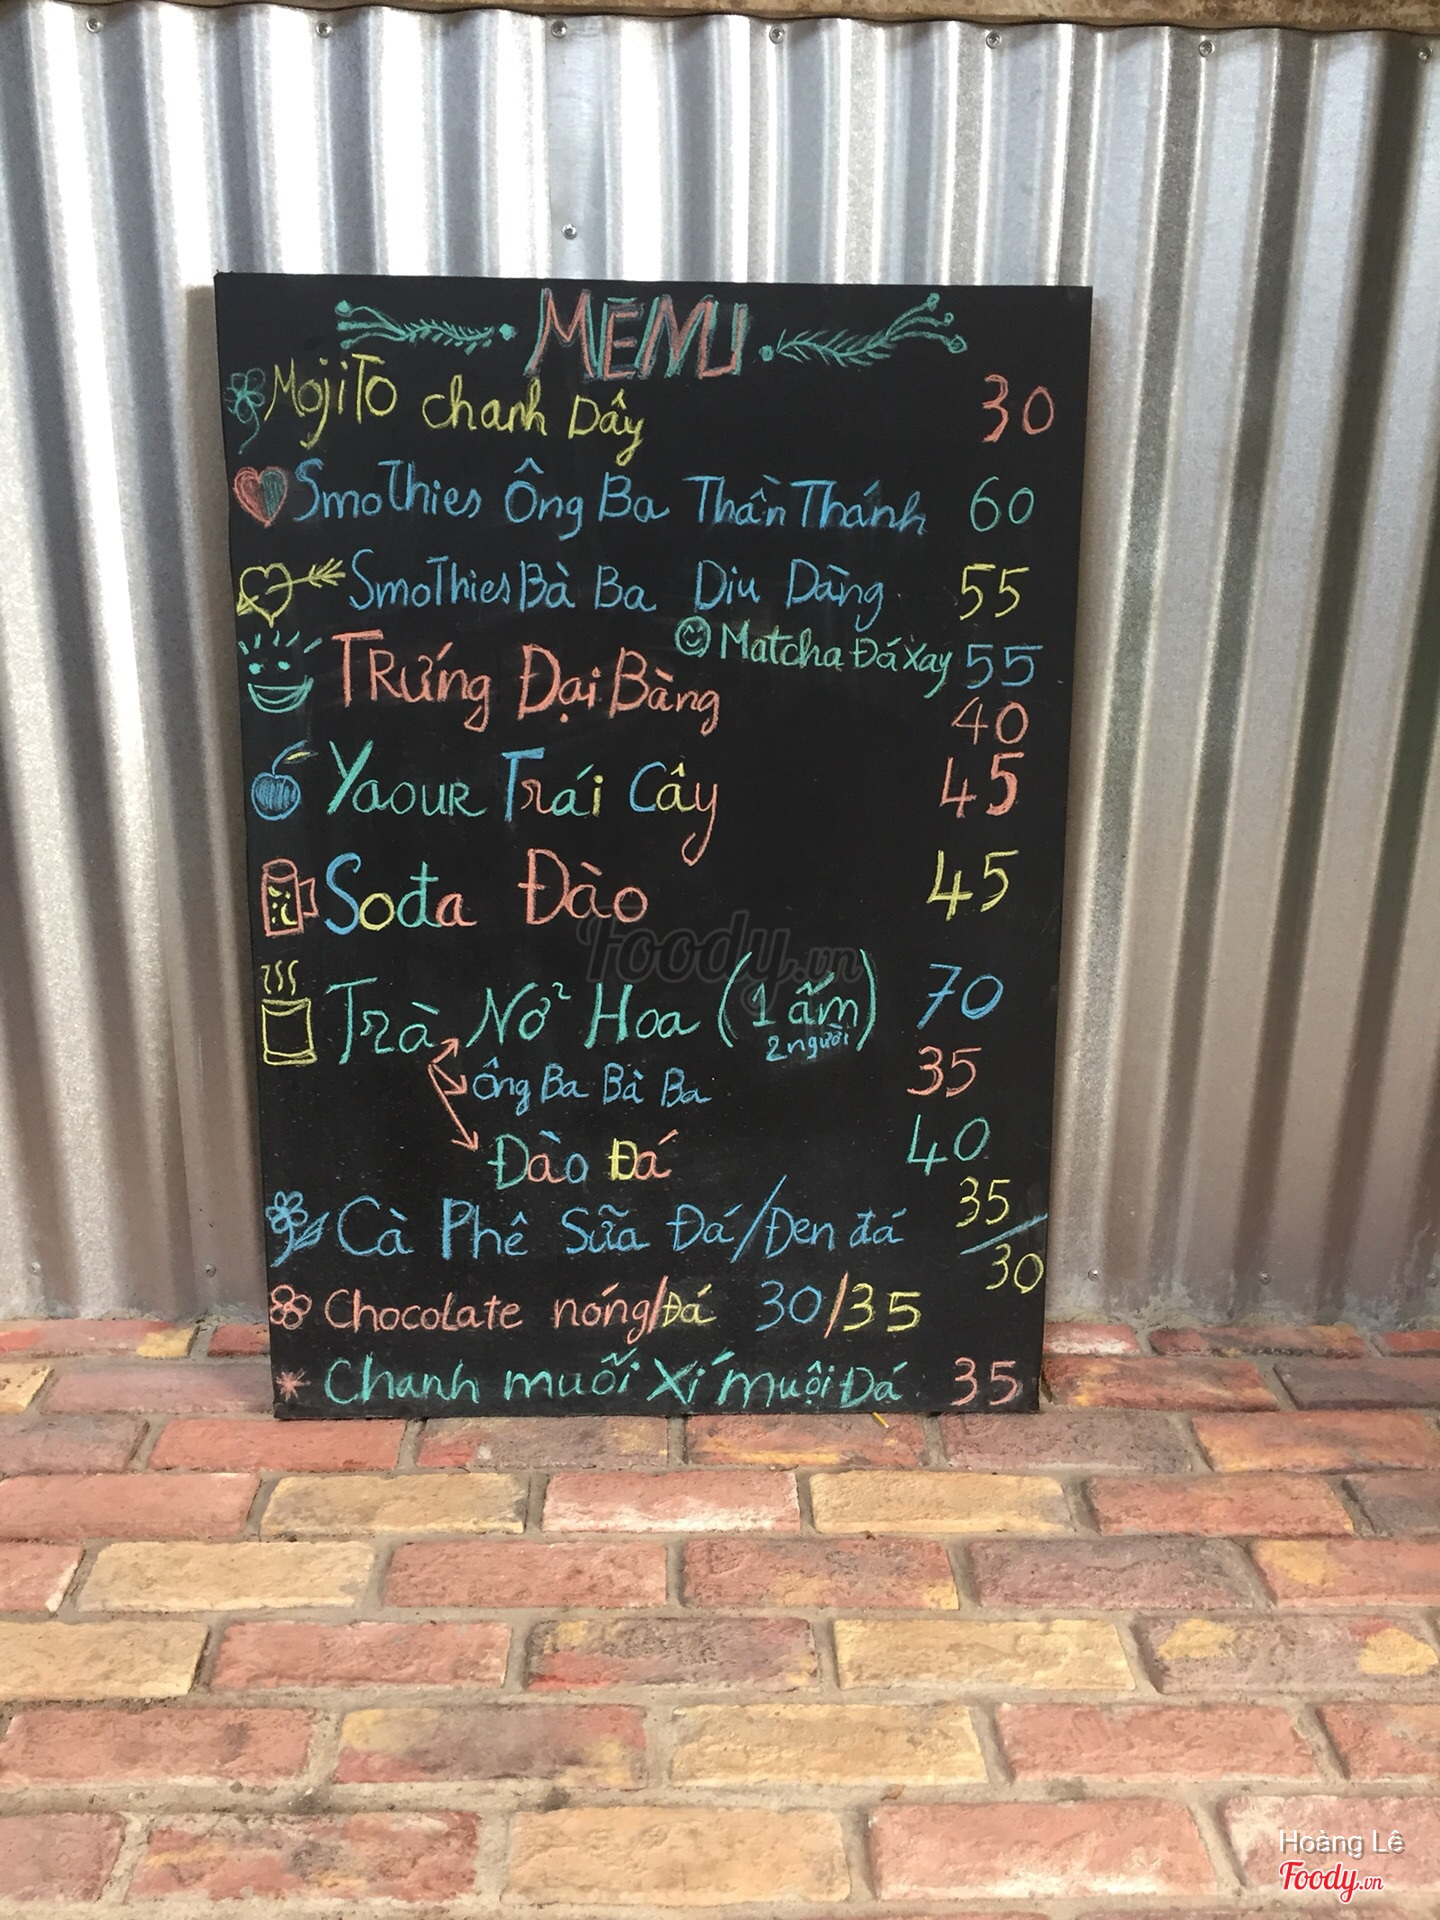 MENU
Mojito chanh Dây 30
Smothies Ông Ba Thần Thánh 60
Smothies Bà Ba Diu Dàng 55
Matcha Đá Xay 55
Trứng Đại Bàng 40
Yaour Trái Cây 45
Sođa Đào 45
Trà Nở Hoa (1 ấm) 70
2 người
Ông Ba Bà Ba 35
Đào Đá 40
Cà Phê Sữa Đá/Đen đá 35/30
Chocolate nóng/Đá 30/35
Chanh muối Xí muội Đá 35
Foody.vn
Hoàng Lê
Foody.vn